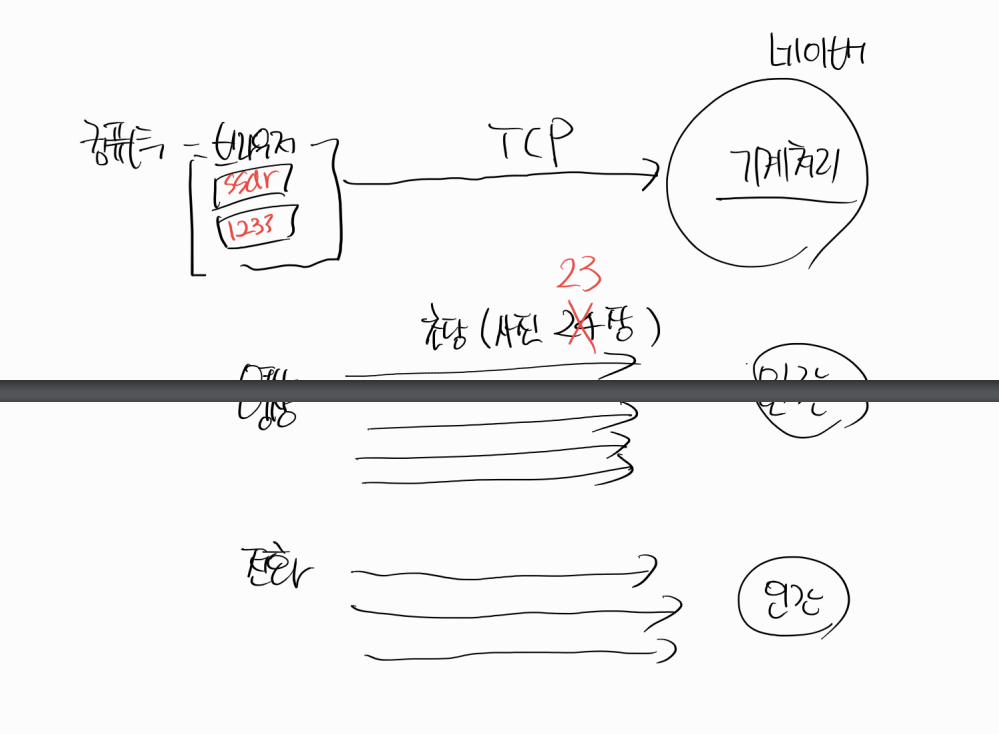 네이버
컴퓨터 - 브라우저 TCP
ssar
1233
기계처리
23
초당 (사진 24장)
영상 인간
전화 인간